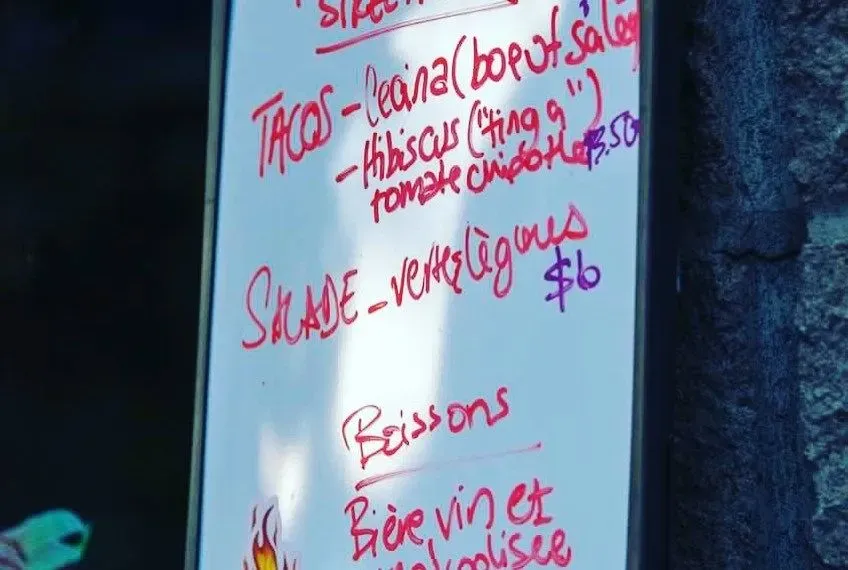 TACOS - Cecina (boeuf salé)
- Hibiscus ("tinga")
tomate chipotle $3.50
SALADE - verte, légumes
$6
Boissons
Bière, vin et